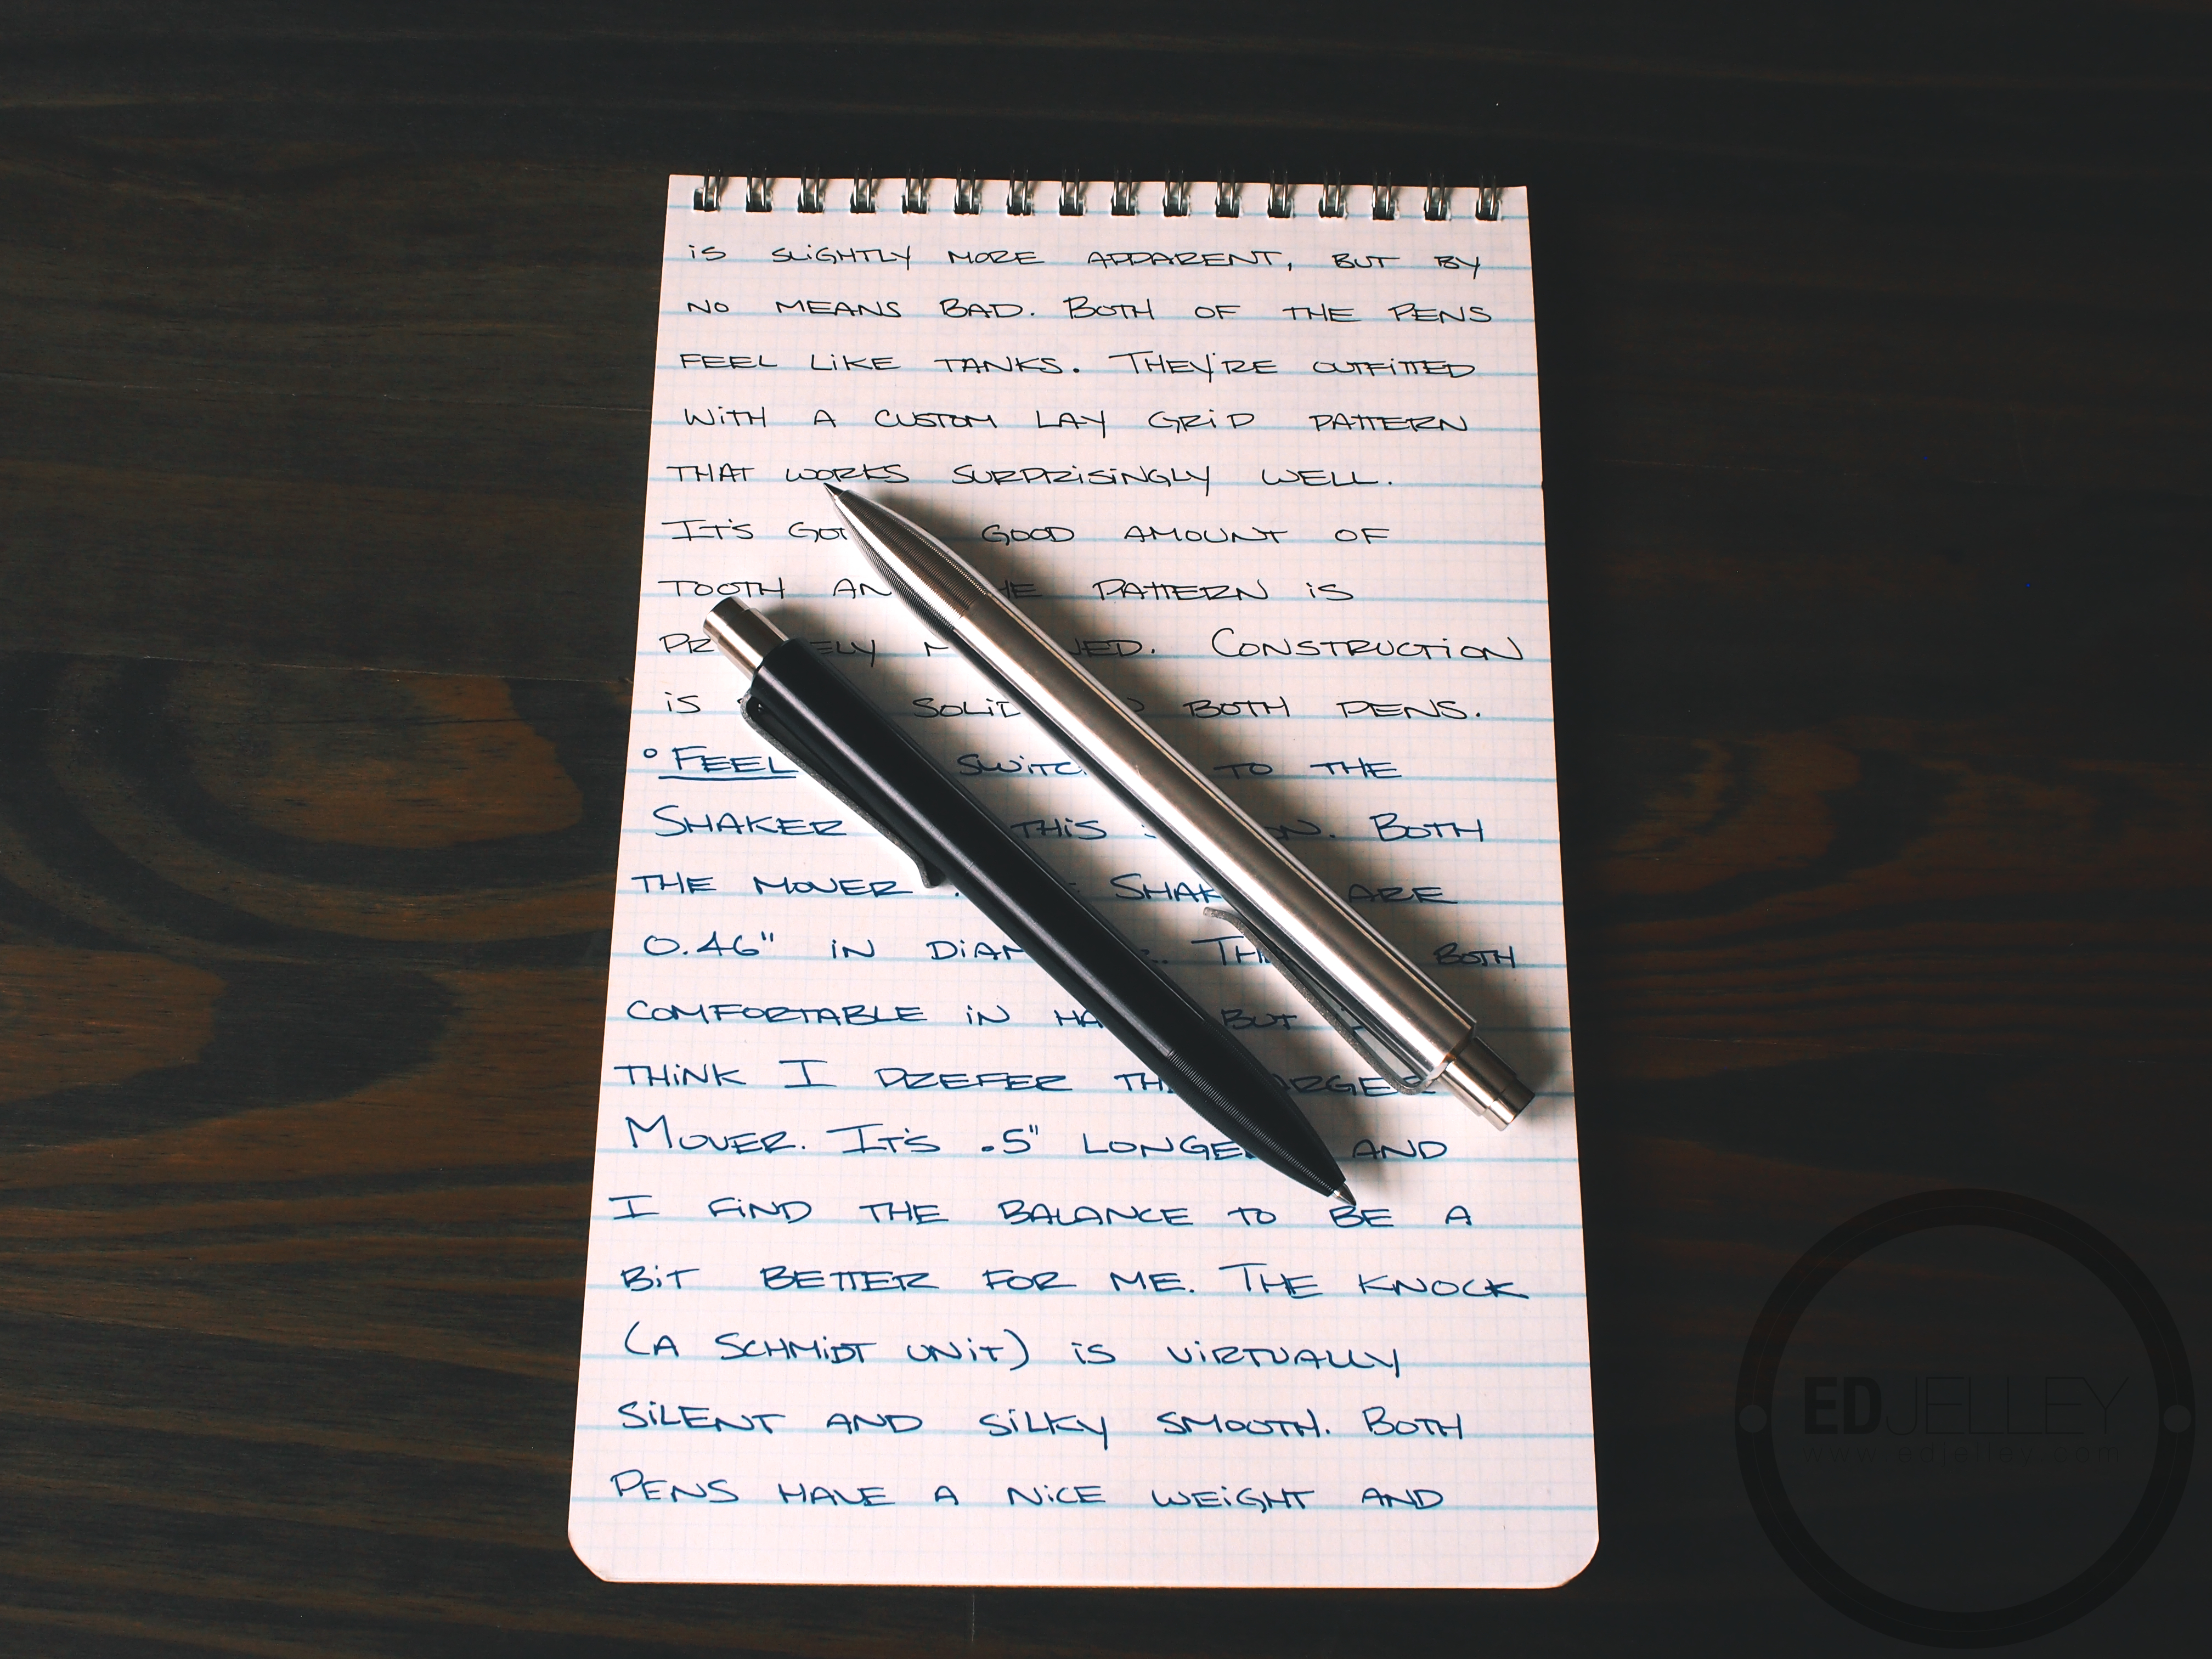 is SLiGHTLY MORE APPARENT, BUT BY
NO MEANS BAD. BOTH OF THE PENS
FEEL LiKE TANKS. THEY'RE OUTFiTTED
WiTH A CUSTOM LAY GRiD PATTERN
THAT WORKS SURPRiSiNGLY WELL.
IT'S GOT GOOD AMOUNT OF
TOOTH PATTERN iS
CONSTRUCTiON
iS BOTH PENS.
° FEEL TO THE
SHAKER THiS BOTH
THE MOVER ARE
0.46" iN BOTH
COMFORTABLE iN BUT
THiNK I PREFER
MOVER. IT'S .5" LONGER AND
I FiND THE BALANCE TO BE A
BiT BETTER FOR ME. THE KNOCK
(A SCHMiDT UNiT) iS ViRTUALLY
SiLENT AND SiLKY SMOOTH. BOTH
PENS HAVE A NiCE WEiGHT AND
EDJELLEY
www.edjelley.com